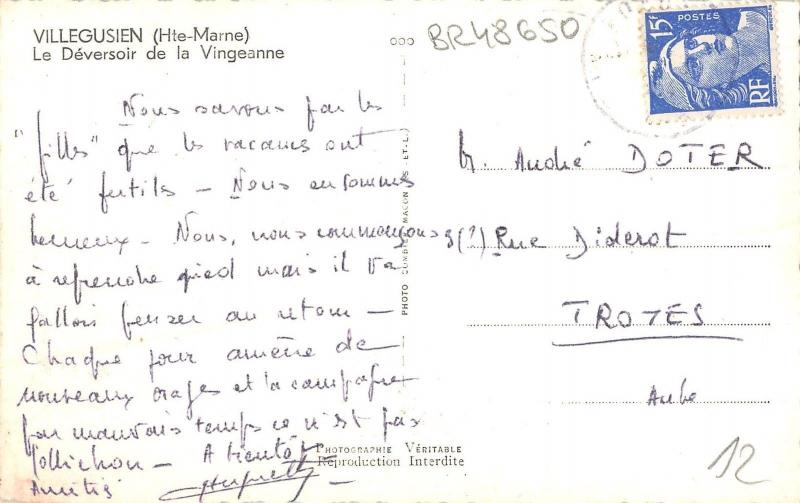 VILLEGUSIEN (Hte-Marne)
Le Déversoir de la Vingeanne
BR48650
15f
POSTES
RF
Nous savons par les
"filles" que les vacances ont
été fertiles — Nous en sommes
heureux — Nous, nous commençons
à reprendre pied mais il va
falloir penser au retour —
Chaque jour amène de
nouveaux orages et la campagne
par mauvais temps ce n'est pas
folichon — A bientôt
Amitiés
M. André DOTER
8(?) Rue Diderot
TROYES
Aube
PHOTO COMBIER MACON
PHOTOGRAPHIE VÉRITABLE
Reproduction Interdite
12